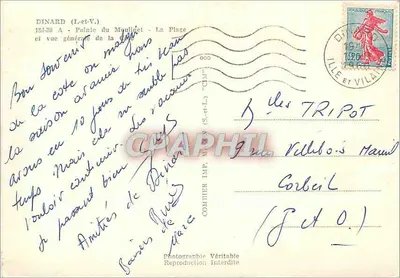 DINARD (I.-et-V.)
151-39 A - Palais du Moulinet - La Plage
et vue générale de la
Bon souvenir
de la cote on mange
la saison avancée nous
avons eu 10 jours de très beau
temps Mais cela ne semble pas
vouloir continuer. Les vacances
se passent bien
Amitiés de Dinard
Baisers de
Marc
COMBIER IMP. MACON (S.-et-L.) "CIM"
DINARD
ILLE ET VILAINE
Mlles TRIPOT
9 rue Villebois Mareuil
Corbeil
(S et O)
CPAPHIL
Photographie Véritable
Reproduction Interdite